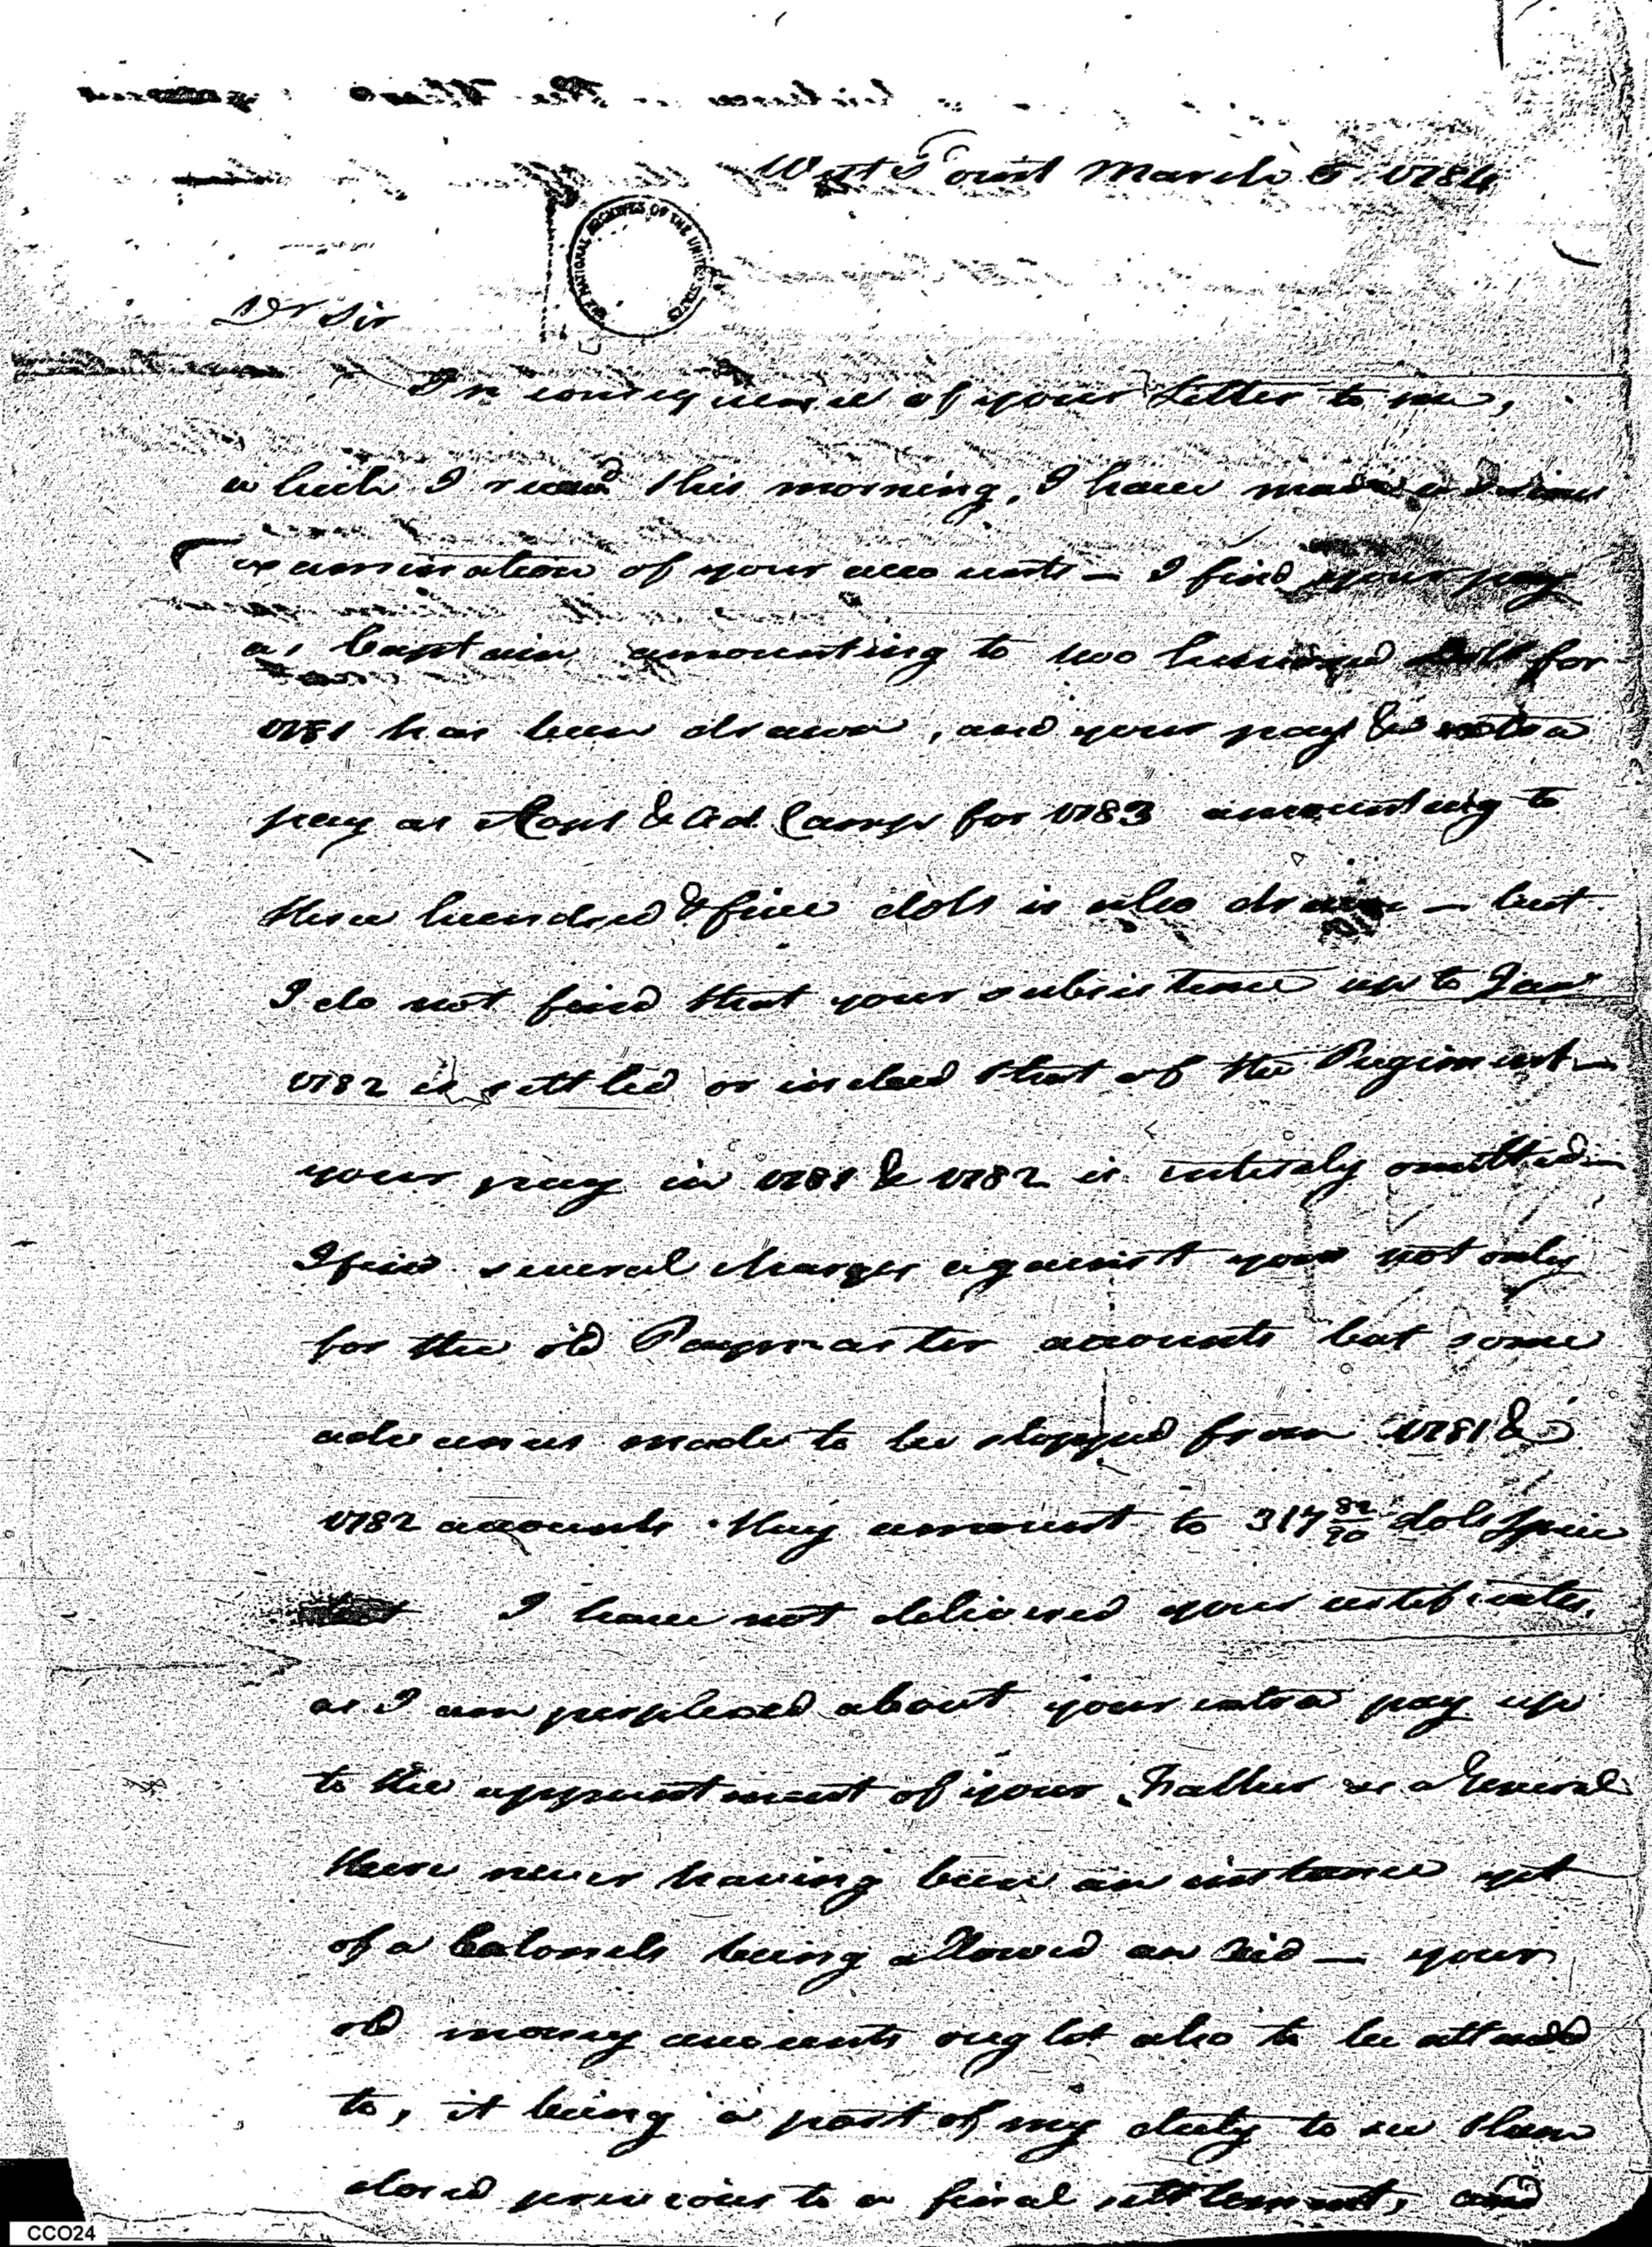 West Point March 5. 1784
THE NATIONAL ARCHIVES OF THE UNITED STATES
Dr Sir
In consequence of your Letter to me,
which I recd this morning, I have made a
examination of your accounts — I find your pay
as Captain amounting to two hundred Doll for
1781 has been drawn, and your pay & extra
pay as Capt & Ad. Camp for 1783 amounting to
three hundred & five dols is also drawn — but
I do not find that your subsistence up to Jany
1782 is settled or indeed that of the Regiment —
your pay in 1781 & 1782 is intirely omitted —
I find several charges against you not only
for the old Paymaster accounts but some
advances made to be stopped from 1781 &
1782 accounts. they amount to 317 82/90 dols Specie
I have not delivered your certificates,
as I am perplexed about your extra pay up
to the appointment of your Father as a General
there never having been an instance yet
of a Colonels being allowed an Aid — your
old money accounts ought also to be attended
to, it being a part of my duty to see them
closed previous to a final settlement, and
CCO24